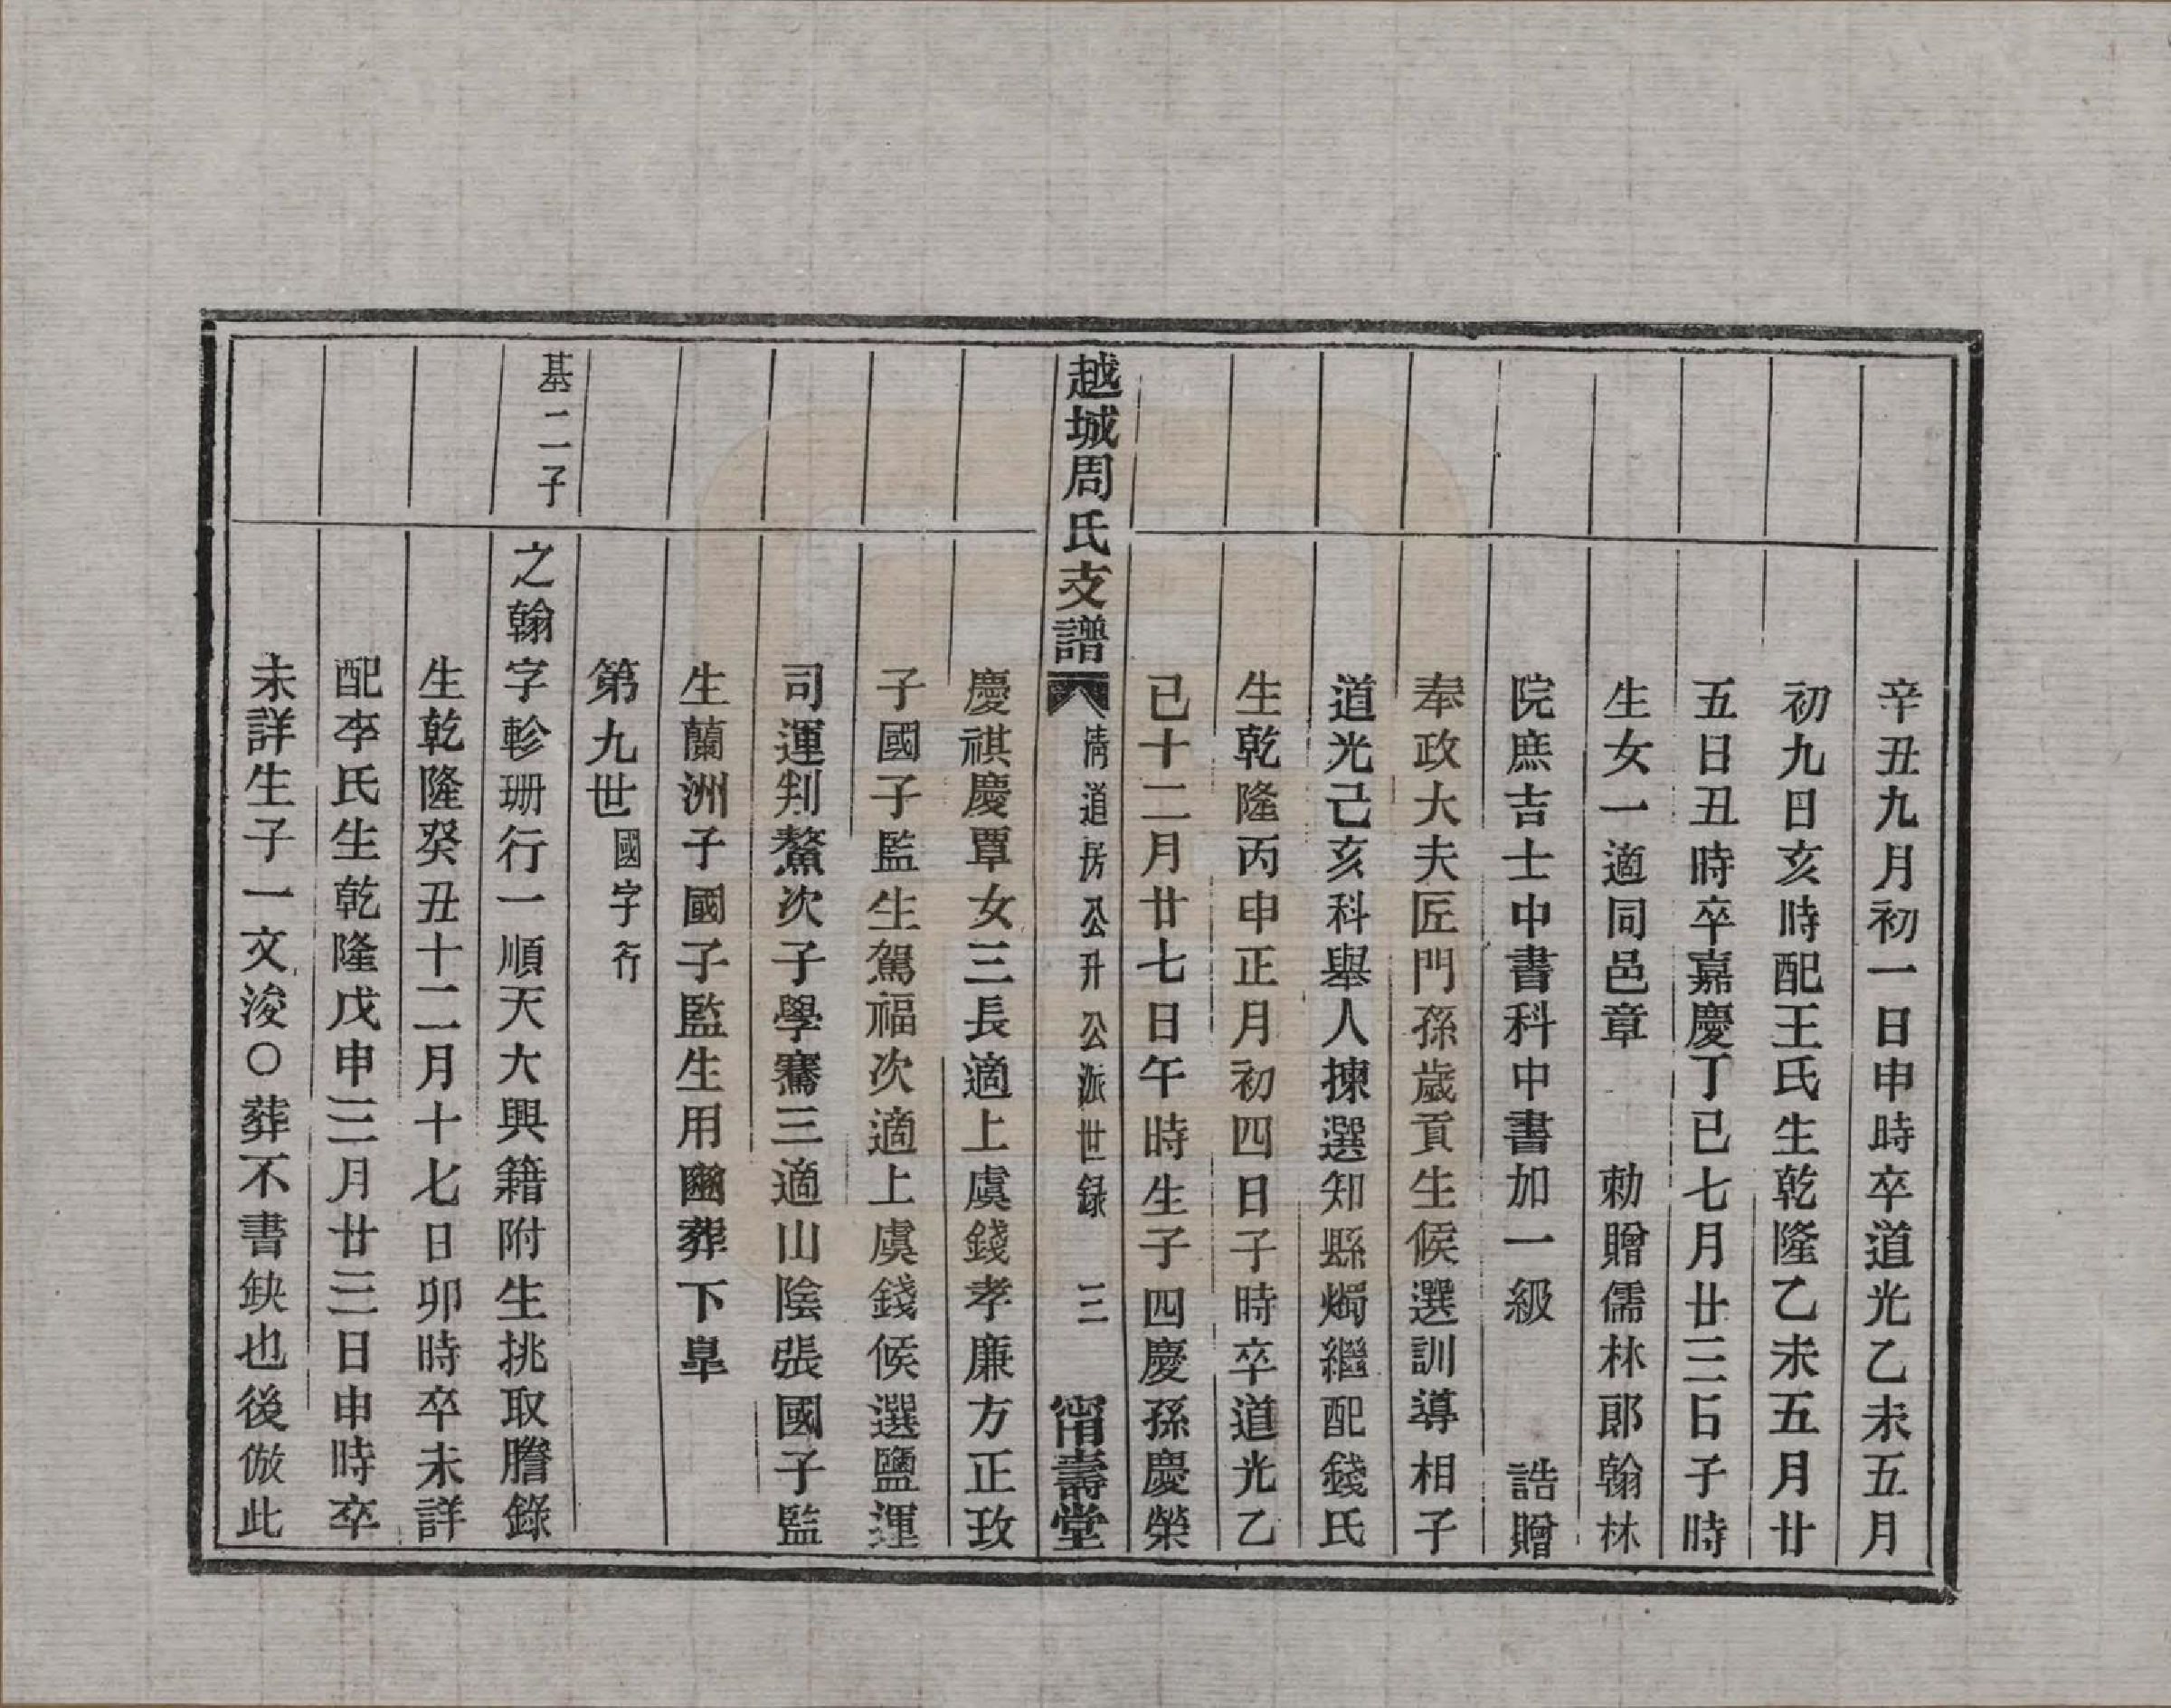 辛丑九月初一日申時卒道光乙未五月
初九日亥時配王氏生乾隆乙未五月廿
五日丑時卒嘉慶丁巳七月廿三日子時
生女一適同邑章　勅贈儒林郎翰林
院庶吉士中書科中書加一級　誥贈
奉政大夫匠門孫歲貢生候選訓導相子
道光己亥科舉人揀選知縣燭繼配錢氏
生乾隆丙申正月初四日子時卒道光乙
巳十二月廿七日午時生子四慶孫慶榮
越城周氏支譜　清道房公升公派世録　三　甯壽堂
慶祺慶覃女三長適上虞錢孝廉方正玫
子國子監生駕福次適上虞錢候選鹽運
司運判鰲次子學騫三適山陰張國子監
生蘭洲子國子監生用豳葬下臯
第九世國字行
基二子
之翰字軫珊行一順天大興籍附生挑取謄錄
生乾隆癸丑十二月十七日卯時卒未詳
配李氏生乾隆戊申三月廿三日申時卒
未詳生子一文浚〇葬不書缺也後倣此